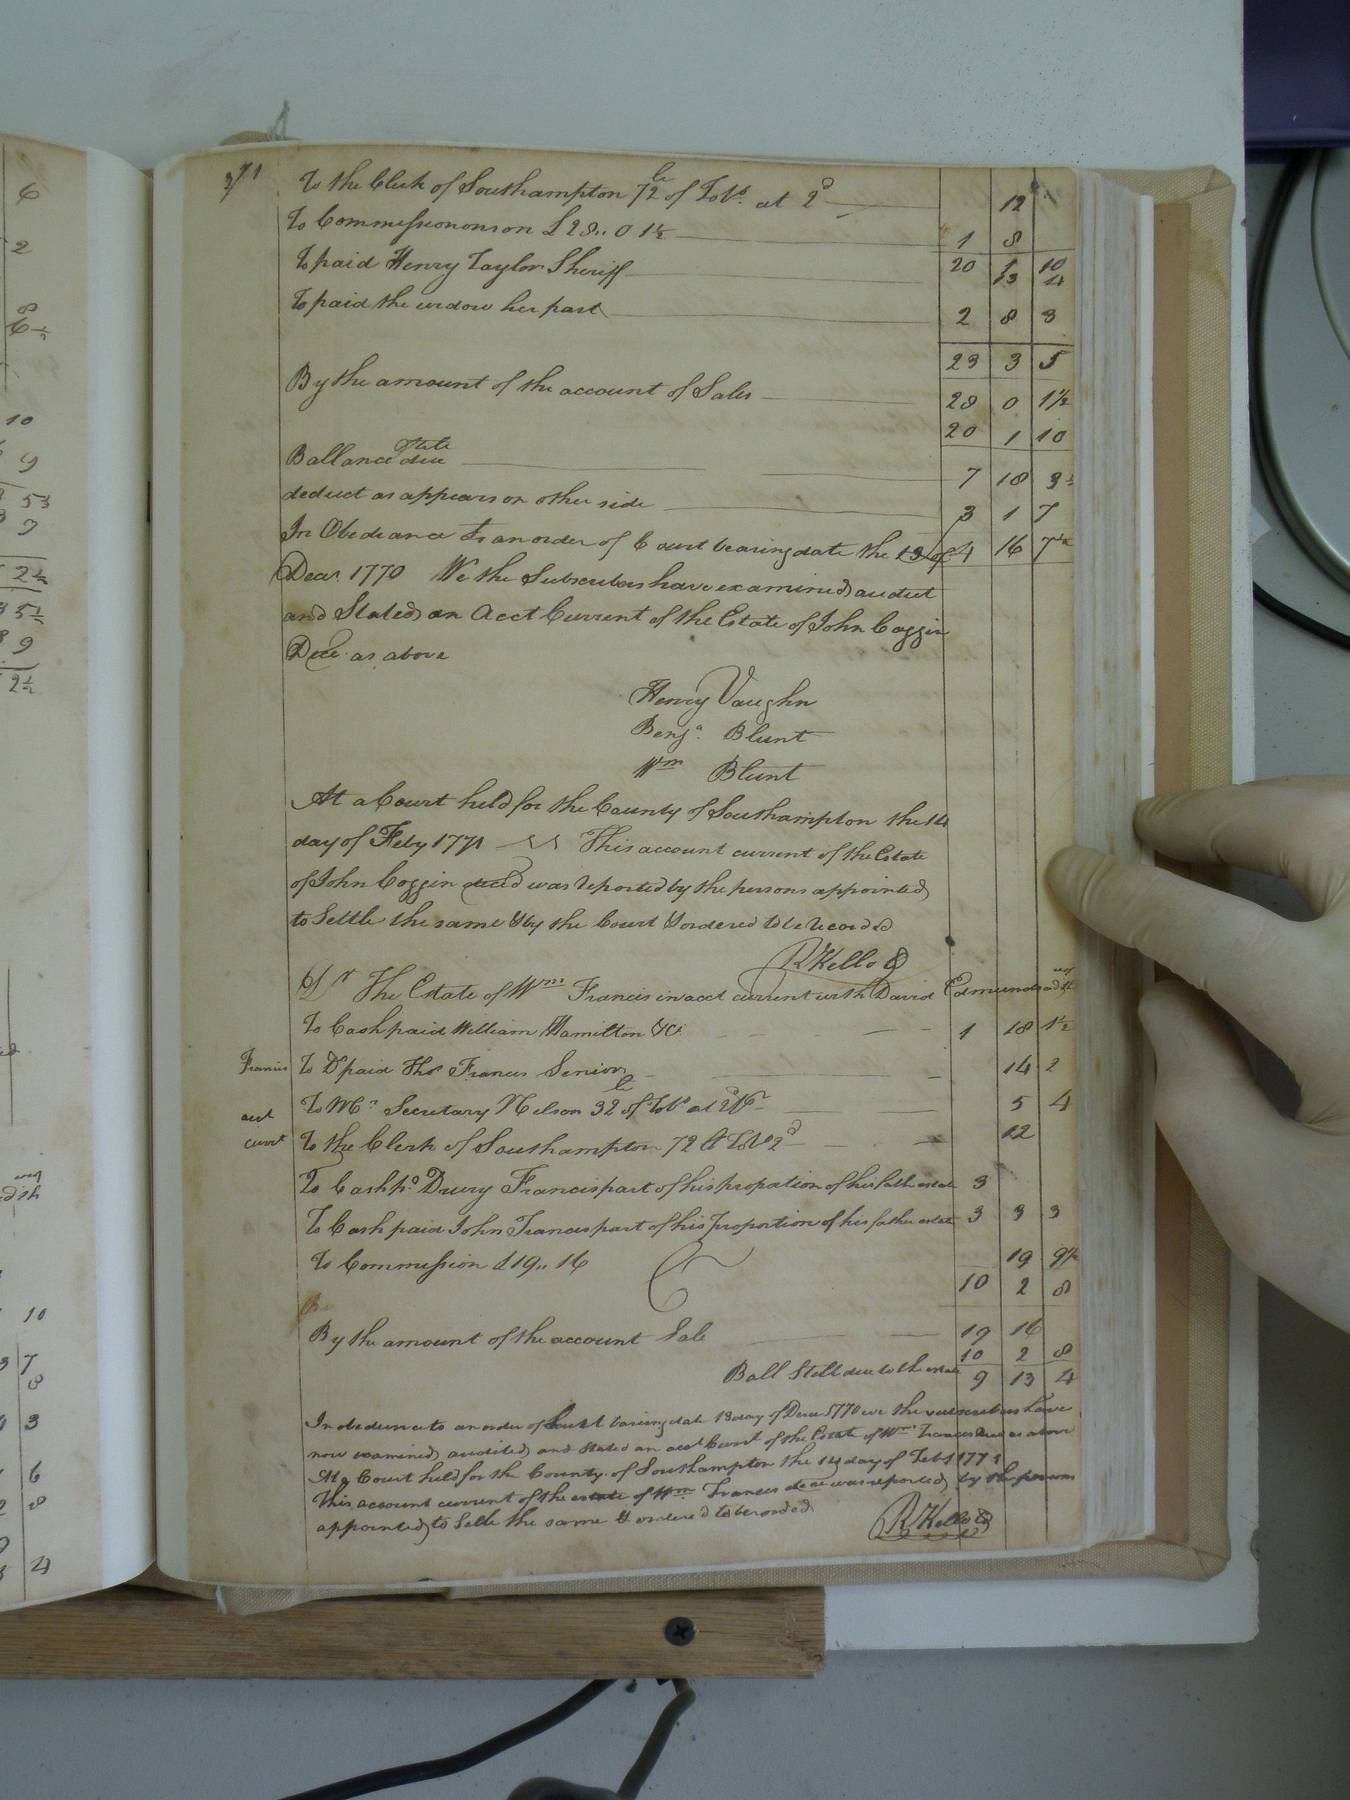 371
To the Clerk of Southampton 72 lb of Tobo. at 2d 12
To Commissionson on £28.. 0 1½ 1 8
To paid Henry Taylor Sheriff 20 1 10
13 4
To paid the widow her part 2 8 3
23 3 5
By the amount of the account of Sales 28 0 1½
20 1 10
Ballance still due 7 18 3½
deduct as appears on other side 3 1 7
In Obedeance to an order of Court bearing date the 13 of 4 16 7½
Decr. 1770 We the Subscribers have examined audit
and Stated an Acct Current of the Estate of John Coggin
Dece. as above
Henry Vaughn
Benja. Blunt
Wm Blunt
At a Court held for the County of Southampton the 14
day of Feby 1771 This account current of the Estate
of John Coggin decd was reported by the persons appointed
to Settle the same & by the Court & ordered to be recorded
R Kello
Dr The Estate of Wm Francis in acct current with David Edmunds
To Cash paid William Hamilton &c. 1 18 1½
Francis
To Do paid Thos Francis Senior 14 2
acct
To Mr. Secretary Nelson 32 lb of Tobo at 2d 5 4
curt
To the Clerk of Southampton 72 lb Tobo 2d 12
To Cash pd. Drury Francis part of his propation of his fath estate 3
To Cash paid John Francis part of his proportion of his father estate 3 3 3
To Commission £19.. 16 19 9½
10 2 8
By the amount of the account Sale 19 16
10 2 8
Ball Still due to the estate 9 13 4
In obedience to an order of Court baring date 13 day of Decr 1770 we the subscribers have
now examined, audited, and stated an acct Curt of the Estate of Wm Francis Dece as above
At a Court held for the County of Southampton the 14 day of Feby 1771
This account current of the estate of Wm. Francis dece was reported by the persons
appointed to Settle the same & ordered to be recorded
R Kello